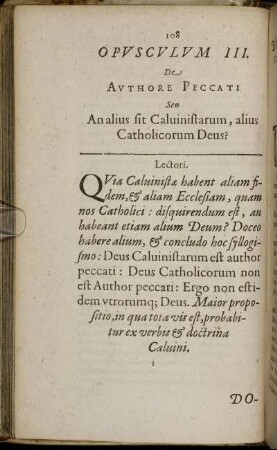 108
OPVSCVLVM III.
De
AVTHORE PECCATI
Seu
An alius sit Caluinistarum, alius
Catholicorum Deus?
Lectori.
QVia Caluinistæ habent aliam fi-
dem, & aliam Ecclesiam, quam
nos Catholici: disquirendum est, an
habeant etiam alium Deum? Doceo
habere alium, & concludo hoc syllogi-
smo: Deus Caluinistarum est author
peccati: Deus Catholicorum non
est Author peccati: Ergo non est i-
dem vtrorumq; Deus. Maior propo-
sitio, in qua tota vis est, probabi-
tur ex verbis & doctrina
Caluini.
DO-